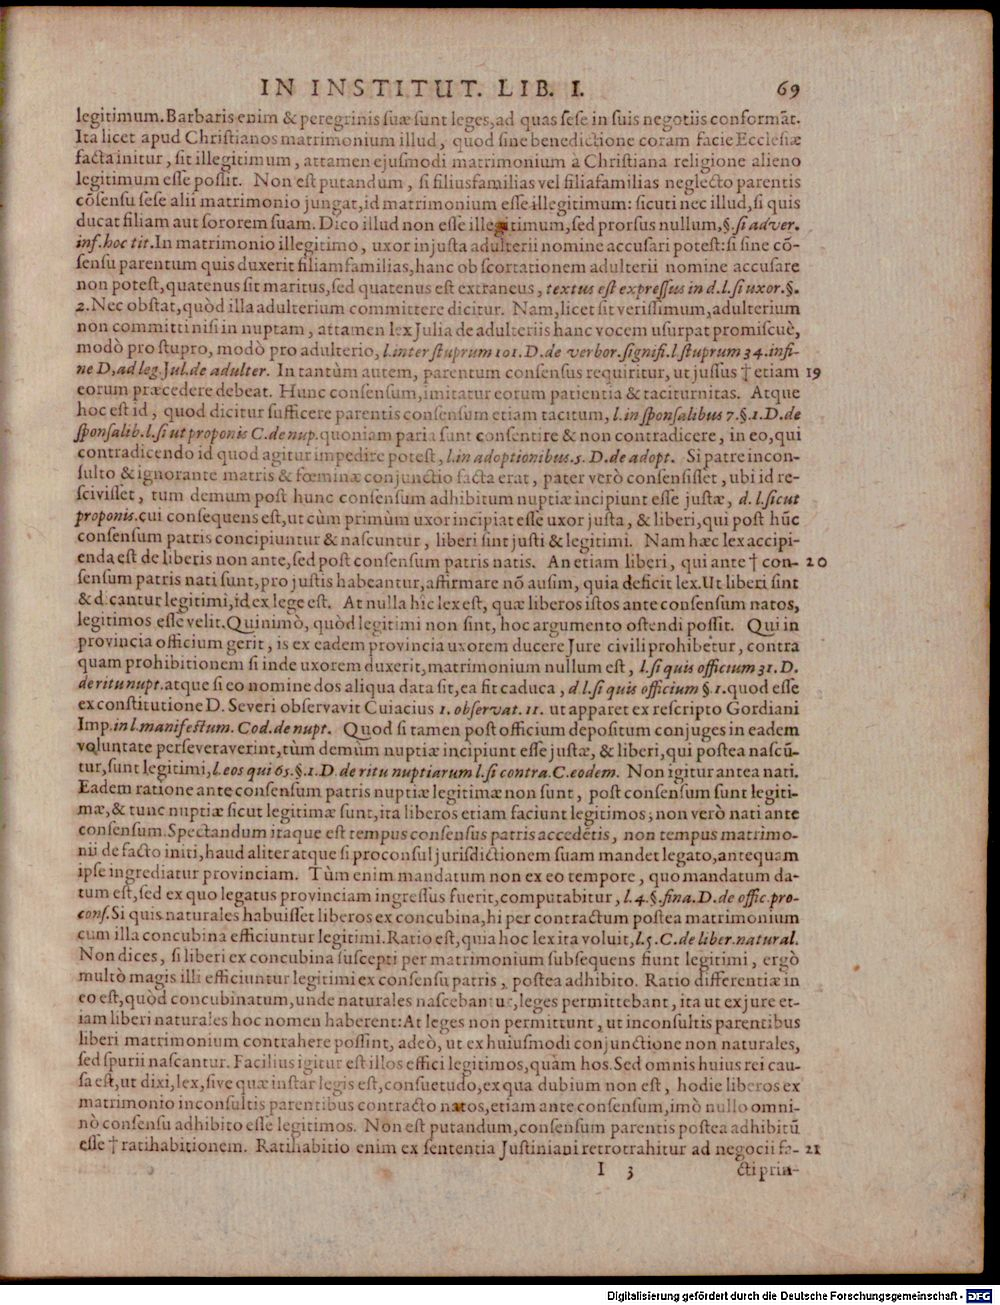 IN INSTITUT. LIB. I. 69
legitimum. Barbaris enim & peregrinis suæ sunt leges, ad quas sese in suis negotiis conformāt.
Ita licet apud Christianos matrimonium illud, quod sine benedictione coram facie Ecclesiæ
facta initur, sit illegitimum, attamen ejusmodi matrimonium à Christiana religione alieno
legitimum esse possit. Non est putandum, si filiusfamilias vel filiafamilias neglecto parentis
cōsensu sese alii matrimonio jungat, id matrimonium esse illegitimum: sicuti nec illud, si quis
ducat filiam aut sororem suam. Dico illud non esse illegitimum, sed prorsus nullum, §. si adver.
inf. hoc tit. In matrimonio illegitimo, uxor injusta adulterii nomine accusari potest: si sine cō-
sensu parentum quis duxerit filiamfamilias, hanc ob scortationem adulterii nomine accusare
non potest, quatenus sit maritus, sed quatenus est extraneus, textus est expressus in d. l. si uxor. §.
2. Nec obstat, quòd illa adulterium committere dicitur. Nam, licet sit verissimum, adulterium
non committi nisi in nuptam, attamen lex Julia de adulteriis hanc vocem usurpat promiscuè,
modò pro stupro, modò pro adulterio, l. inter stuprum 101. D. de verbor. signifi. l stuprum 34. infi-
ne D, ad leg. Jul. de adulter. In tantùm autem, parentum consensus requiritur, ut jussus † etiam 19
eorum præcedere debeat. Hunc consensum, imitatur eorum patientia & taciturnitas. Atque
hoc est id, quod dicitur sufficere parentis consensum etiam tacitum, l. in sponsalibus 7. §. 1. D. de
sponsalib. l. si ut proponis C. de nup. quoniam paria sunt consentire & non contradicere, in eo, qui
contradicendo id quod agitur impedire potest, l. in adoptionibus. 5. D. de adopt. Si patre incon-
sulto & ignorante matris & fœminæ conjunctio facta erat, pater verò consensisset, ubi id re-
scivisset, tum demum post hunc consensum adhibitum nuptiæ incipiunt esse justæ, d. l. sicut
proponis. cui consequens est, ut cùm primùm uxor incipiat esse uxor justa, & liberi, qui post hūc
consensum patris concipiuntur & nascuntur, liberi sint justi & legitimi. Nam hæc lex accipi-
enda est de liberis non ante, sed post consensum patris natis. An etiam liberi, qui ante † con- 20
sensum patris nati sunt, pro justis habeantur, affirmare nō ausim, quia deficit lex. Ut liberi sint
& dicantur legitimi, id ex lege est. At nulla hîc lex est, quæ liberos istos ante consensum natos,
legitimos esse velit. Quinimò, quòd legitimi non sint, hoc argumento ostendi possit. Qui in
provincia officium gerit, is ex eadem provincia uxorem ducere Jure civili prohibetur, contra
quam prohibitionem si inde uxorem duxerit, matrimonium nullum est, l. si quis officium 31. D.
de ritu nupt. atque si eo nomine dos aliqua data sit, ea fit caduca, d l. si quis officium §. 1. quod esse
ex constitutione D. Severi observavit Cuiacius 1. observat. 11. ut apparet ex rescripto Gordiani
Imp. in l. manifestum. Cod. de nupt. Quod si tamen post officium depositum conjuges in eadem
voluntate perseveraverint, tùm demùm nuptiæ incipiunt esse justæ, & liberi, qui postea nascū-
tur, sunt legitimi, l. eos qui 65. §. 1. D. de ritu nuptiarum l. si contra. C. eodem. Non igitur antea nati.
Eadem ratione ante consensum patris nuptiæ legitimæ non sunt, post consensum sunt legiti-
mæ, & tunc nuptiæ sicut legitimæ sunt, ita liberos etiam faciunt legitimos; non verò nati ante
consensum. Spectandum itaque est tempus consensus patris accedētis, non tempus matrimo-
nii de facto initi, haud aliter atque si proconsul jurisdictionem suam mandet legato, antequam
ipse ingrediatur provinciam. Tùm enim mandatum non ex eo tempore, quo mandatum da-
tum est, sed ex quo legatus provinciam ingressus fuerit, computabitur, l. 4. §. fina. D. de offic. pro-
cons. Si quis naturales habuisset liberos ex concubina, hi per contractum postea matrimonium
cum illa concubina efficiuntur legitimi. Ratio est, quia hoc lex ita voluit, l. 5. C. de liber. natural.
Non dices, si liberi ex concubina suscepti per matrimonium subsequens fiunt legitimi, ergò
multò magis illi efficiuntur legitimi ex consensu patris, postea adhibito. Ratio differentiæ in
eo est, quòd concubinatum, unde naturales nascebantur, leges permittebant, ita ut ex jure et-
iam liberi naturales hoc nomen haberent: At leges non permittunt, ut inconsultis parentibus
liberi matrimonium contrahere possint, adeò, ut ex huiusmodi conjunctione non naturales,
sed spurii nascantur. Facilius igitur est illos effici legitimos, quàm hos. Sed omnis huius rei cau-
sa est, ut dixi, lex, sive quæ instar legis est, consuetudo, ex qua dubium non est, hodie liberos ex
matrimonio inconsultis parentibus contracto natos, etiam ante consensum, imò nullo omni-
nò consensu adhibito esse legitimos. Non est putandum, consensum parentis postea adhibitū
esse † ratihabitionem. Ratihabitio enim ex sententia Justiniani retrotrahitur ad negocii fa- 21
I 3 cti prin-
Digitalisierung gefördert durch die Deutsche Forschungsgemeinschaft - DFG